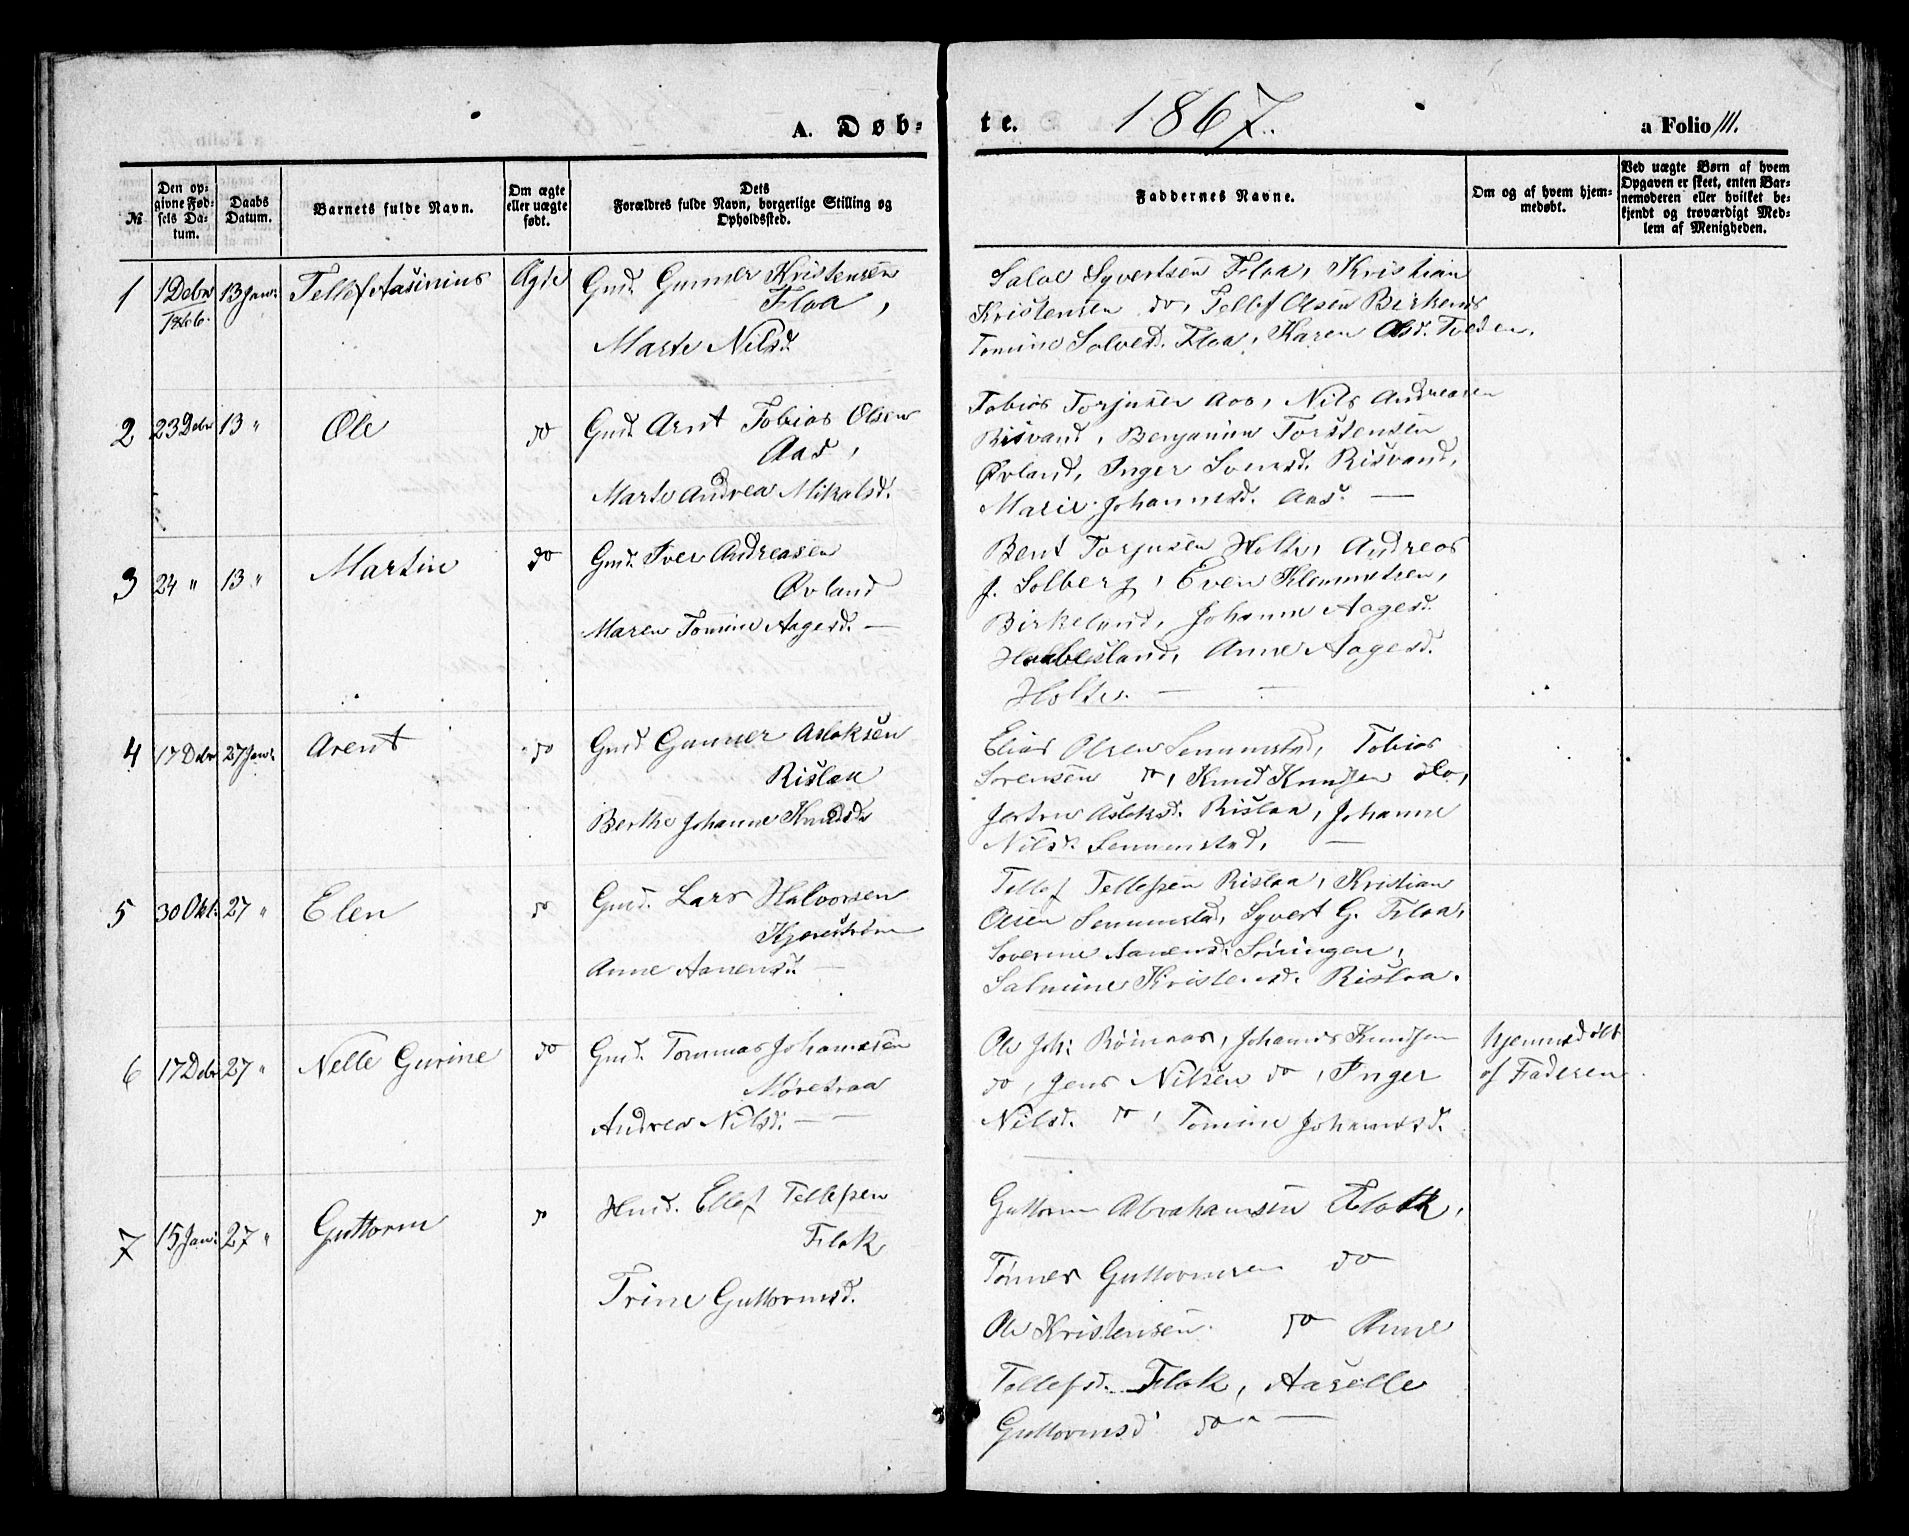 A. Døb- te. 1867. a Folio 111.
№
Den op-
givne Fød-
sels Da-
tum.
Daabs
Datum.
Barnets fulde Navn.
Om ægte
eller uægte
født.
Dets
Forældres fulde Navn, borgerlige Stilling og
Opholdssted.
Faddernes Navne.
Om og af hvem hjem-
medøbt.
Ved uægte Børn af hvem
Opgaven er skeet, enten Bar-
nemoderen eller hvilket be-
kjendt og troværdigt Med-
lem af Menigheden.
1 1 Debr 13 Janr Tellef Aasinius Ægte Gmd. Gunner Kristensen
Floa,
Marte Nilsd.
Salve Syvertsen Floa, Kristian
Kristensen do, Tellef Olsen Birkenes
Tomine Solvesd. Floa, Karen Olsd.
2 23 Debr 13 " Ole do Gmd. Arnt Tobias Olsen
Aas,
Marte Andrea Mikalsd.
Tobias Torjusen Aas, Nils Andreasen
Risvand, Benjamin Torstensen
Øvland, Inger Svensd. Risvand,
Marie Johannesd. Aas. —
3 24 " 13 " Martin do Gmd. Iver Andreasen
Øvland
Maren Tomine Aagesd. —
Bent Torjusen Holte, Andreas
J. Solberg, Even Klemmetsen,
Birkeland, Johanne Aagesd.
Habbesland, Anne Aagesd.
Holte. — —
4 17 Debr 27 Janr Arent do Gmd. Gunner Aslaksen
Rislaa
Berthe Johanne Knudsd.
Elias Olsen Senumstad, Tobias
Sorensen do, Knud Knudsen do,
Aslaksd. Rislaa, Johanne
Nilsd. Senumstad, —
5 30 Okt. 27 " Elen do Gmd. Lars Halvorsen
Kjevestrøm
Anne Aanensd. —
Tellef Tellefsen Rislaa, Kristian
Olsen Senumstad, Syvert G. Floa,
Soverine Aanensd.
Salmine Kristensd. Rislaa.
6 17 Debr 27 " Nelle Gurine do Gmd. Tommas Johannesen
Møretraa
Andrea Nilsd. — —
Ole Joh: Røinaas, Johannes Knudsen
do, Jens Nilsen do, Inger
Nilsd. do, Tomine Johannesd.
hjemmedøbt
af Faderen
7 15 Janr 27 " Guttorm do Hmd. Ellef Tellefsen
Flak
Trine Guttormsd.
Guttorm Abrahamsen Flak,
Tønnes Guttormsen do
Ole Kristensen. do Anne
Tellefsd. Flak, Aaselle
Guttormsd do " —